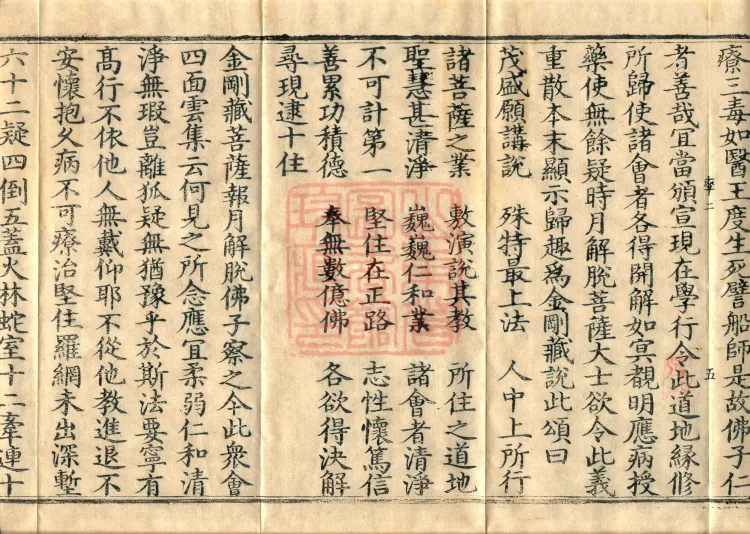 療三毒如醫王度生死譬船師是故佛子仁
者善哉宜當頒宣現在學行令此道地緣修
所歸使諸會者各得開解如冥覩明應病授
藥使無餘疑時月解脫菩薩大士欲令此義
重散本末顯示歸趣爲金剛藏說此頌曰
茂盛願講說 殊特最上法 人中上所行
諸菩薩之業 敷演說其教 所住之道地
聖慧甚清淨 巍巍仁和業 諸會者清淨
不可計第一 堅住在正路 志性懷篤信
善累功積德 奉無數億佛 各欲得決解
尋現逮十住
金剛藏菩薩報月解脫佛子察之今此衆會
四面雲集云何見之所念應宜柔弱仁和清
淨無瑕豈離狐疑無猶豫乎於斯法要寧有
高行不依他人無戴仰耶不從他教進退不
安懷抱久病不可療治堅住羅網未出深塹
六十二疑四倒五蓋火林蛇室十二牽連十
二
五